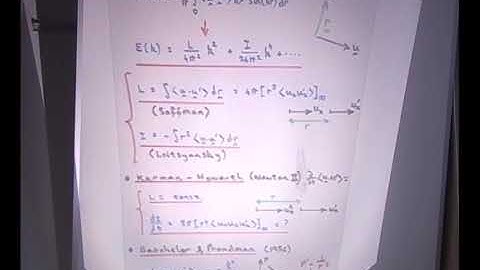 E(k) = L/4π² k² + I/24π² k⁴ + ....
L = ∫⟨u·u'⟩dr = 4π[r³⟨uₓu'ₓ⟩]∞
(Saffman)
I = -∫r²⟨u·u'⟩dr
(Loitsyansky)
• Karman - Howarth (Newton II) ∂/∂t⟨u·u'⟩ =
L = const
dI/dt = 8π[r⁴⟨uₓuₓu'ₓ⟩]∞ = ?
• Batchelor & Proudman (1956)